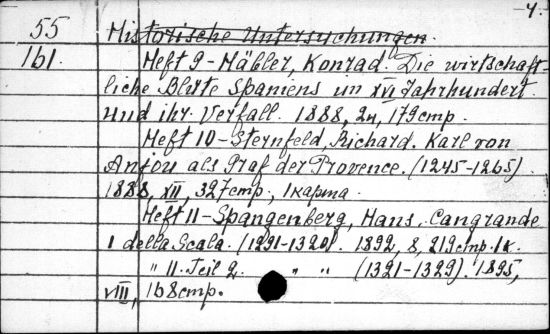 -4.
55 Historische Untersuchungen.
161. Heft 9 - Häbler, Konrad. Die wirtschaft-
liche Blüte Spaniens im XVI Jahrhundert
und ihr Verfall. 1888, 2н, 179стр.
Heft 10 - Sternfeld, Richard. Karl von
Anjou als Graf der Provence. (1245-1265).
1888, XII, 327стр., 1карта.
Heft 11 - Spangenberg, Hans. Cangrande
I della Scala. (1291-1320). 1892, 8, 219стр. 1к.
" 11. Teil 2. " " (1321-1329). 1895,
VIII, 168стр.